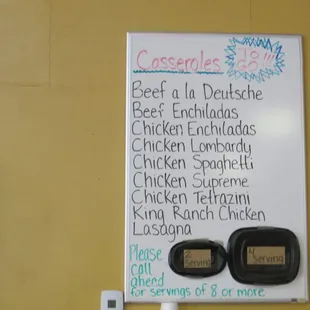 Casseroles
TO !!!
GO
Beef a la Deutsche
Beef Enchiladas
Chicken Enchiladas
Chicken Lombardy
Chicken Spaghetti
Chicken Supreme
Chicken Tetrazini
King Ranch Chicken
Lasagna
Please
call
ahead
for servings of 8 or more
2
Serving
4
Serving